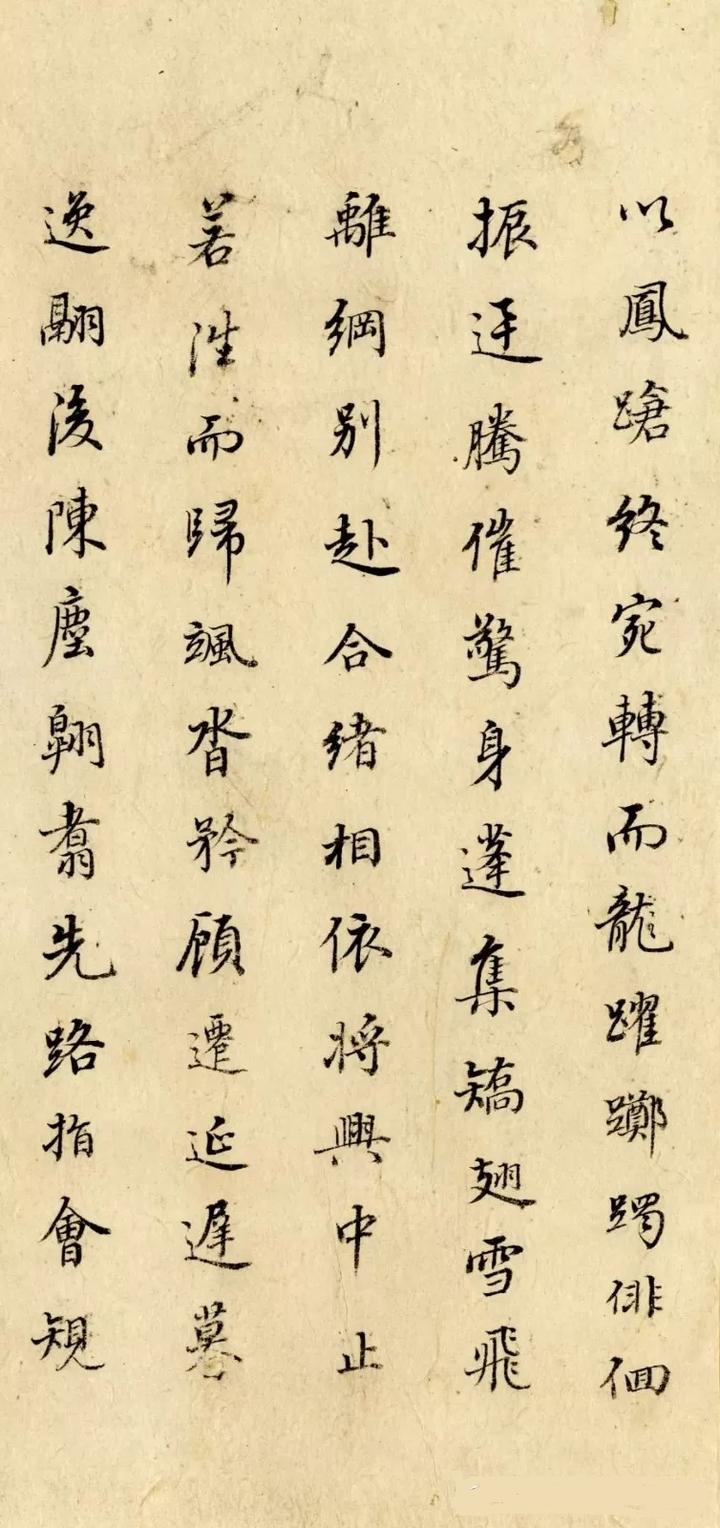 以鳳蹌終宛轉而龍躍躑躅俳佪
振迅騰催驚身蓬集矯翅雪飛
離綱別赴合緒相依將興中止
若往而歸颯沓矜顧遷延遲暮
逸翮後陳塵翱翥先路指會規